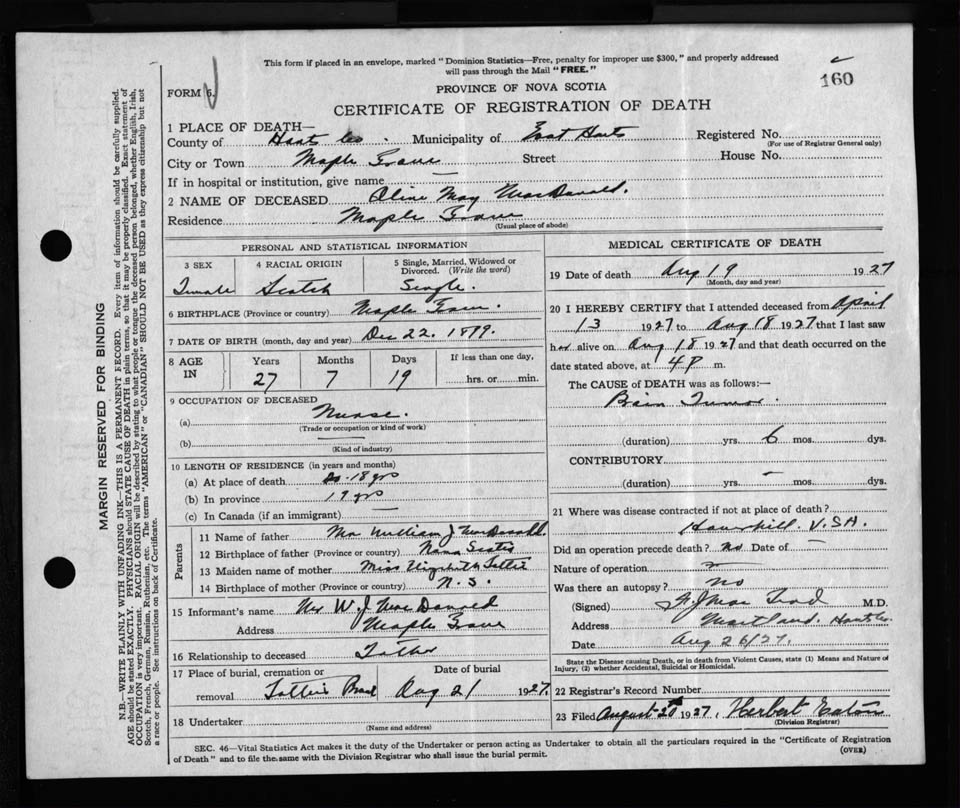 This form if placed in an envelope, marked "Dominion Statistics—Free, penalty for improper use $300," and properly addressed
will pass through the Mail "FREE."
160
PROVINCE OF NOVA SCOTIA
FORM 6.
CERTIFICATE OF REGISTRATION OF DEATH
1 PLACE OF DEATH—
County of Hants Co. Municipality of East Hants Registered No.
(For use of Registrar General only)
City or Town Maple Grove Street House No.
If in hospital or institution, give name —
2 NAME OF DECEASED Olive May MacDonald.
Residence Maple Grove
(Usual place of abode)
PERSONAL AND STATISTICAL INFORMATION
3 SEX 4 RACIAL ORIGIN 5 Single, Married, Widowed or
Divorced. (Write the word)
Female Scotch Single.
6 BIRTHPLACE (Province or country) Maple Grove.
7 DATE OF BIRTH (month, day and year) Dec 22. 1899.
8 AGE IN Years Months Days If less than one day,
27 7 19 hrs. or min.
9 OCCUPATION OF DECEASED
(a) Nurse.
(Trade or occupation or kind of work)
(b) —
(Kind of industry)
10 LENGTH OF RESIDENCE (in years and months)
(a) At place of death 18 yrs
(b) In province 19 yrs
(c) In Canada (if an immigrant) —
Parents
11 Name of father Mr William J MacDonald
12 Birthplace of father (Province or country) Nova Scotia
13 Maiden name of mother Miss
14 Birthplace of mother (Province or country) N. S.
15 Informant's name Mr W. J. MacDonald
Address Maple Grove
16 Relationship to deceased Father
17 Place of burial, cremation or Date of burial
removal Aug 21 1927.
18 Undertaker
(Name and address)
MEDICAL CERTIFICATE OF DEATH
19 Date of death Aug 19 1927
(Month, day and year)
20 I HEREBY CERTIFY that I attended deceased from April
13 1927 to Aug 18 1927 that I last saw
her alive on Aug 18 1927 and that death occurred on the
date stated above, at 4 P m.
The CAUSE of DEATH was as follows:—
Brain Tumor.
(duration) yrs. 6 mos. dys.
CONTRIBUTORY
(duration) — yrs. mos. dys.
21 Where was disease contracted if not at place of death?
Haverhill. U.S.A.
Did an operation precede death? no Date of —
Nature of operation —
Was there an autopsy? no
(Signed) M.D.
Address Maitland. Hants Co.
Date Aug 26/27.
State the Disease causing Death, or in death from Violent Causes, state (1) Means and Nature of
Injury, (2) whether Accidental, Suicidal or Homicidal.
22 Registrar's Record Number
23 Filed August 1927, Herbert Eaton
(Division Registrar)
SEC. 46—Vital Statistics Act makes it the duty of the Undertaker or person acting as Undertaker to obtain all the particulars required in the "Certificate of Registration
of Death" and to file the same with the Division Registrar who shall issue the burial permit.
(OVER)
MARGIN RESERVED FOR BINDING
N.B.—WRITE PLAINLY WITH UNFADING INK—THIS IS A PERMANENT RECORD. Every item of information should be carefully supplied.
AGE should be stated EXACTLY. PHYSICIANS should STATE CAUSE OF DEATH in plain terms, so that it may be properly classified. Exact statement of
OCCUPATION is very important. RACIAL ORIGIN will be described by stating to what people or tongue the deceased person belonged, whether English, Irish,
Scotch, French, German, Russian, Ruthenian, etc. The terms "AMERICAN" or "CANADIAN" SHOULD NOT BE USED as they express citizenship but not
a race or people. See instructions on back of Certificate.